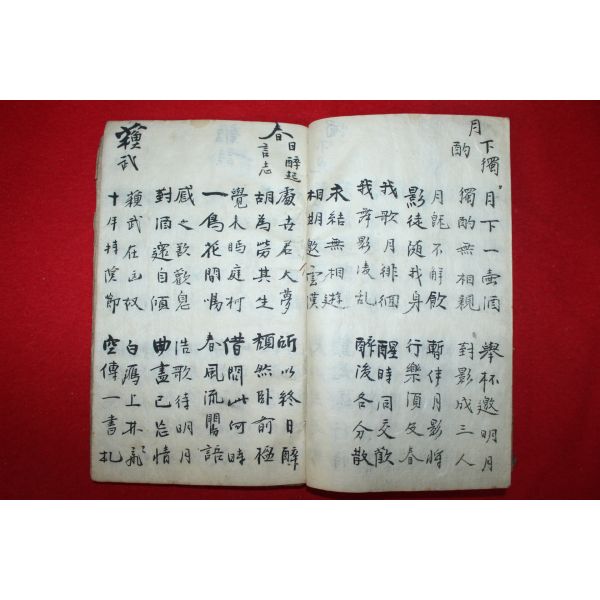 月下獨酌
月下一壺酒 擧杯邀明月
獨酌無相親 對影成三人
月旣不解飮 暫伴月影將
影徒隨我身 行樂須及春
我歌月徘徊 醒時同交歡
我舞影凌乱 醉後各分散
永結無相遊
相期邈雲漢
春日醉起言志
處世若大夢 所以終日醉
胡為勞其生 頹然卧前楹
覺來眄庭柯 借問此何時
一鳥花間鳴 春風流鶯語
感之欲歎息 浩歌待明月
對酒還自傾 曲盡已忘情
蘇武
蘇武在匈奴 白鴈上林飛
十年持漢節 空傳一書札